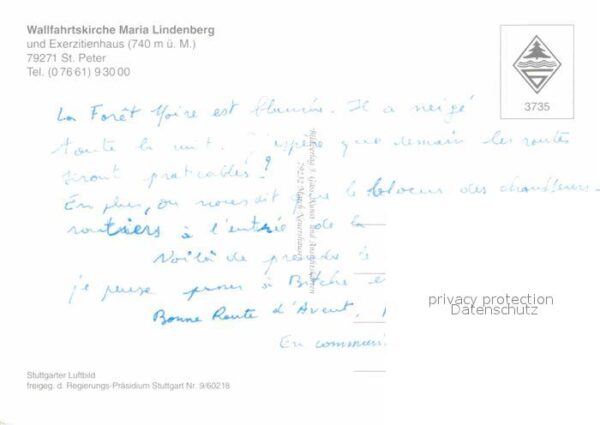 Wallfahrtskirche Maria Lindenberg
und Exerzitienhaus (740 m ü. M.)
79271 St. Peter
Tel. (0 76 61) 9 30 00
3735
La Forêt Noire est blanche. Il a neigé
toute la nuit. J'espère que demain les routes
seront praticables!
En plus, on nous dit que le blocus des chauffeurs-
routiers à l'entrée de la
Voilà de prendre le
je pense à Bitche
Bonne Route d'Avent,
En
privacy protection
Datenschutz
Stuttgarter Luftbild
freigeg. d. Regierungs-Präsidium Stuttgart Nr. 9/60218